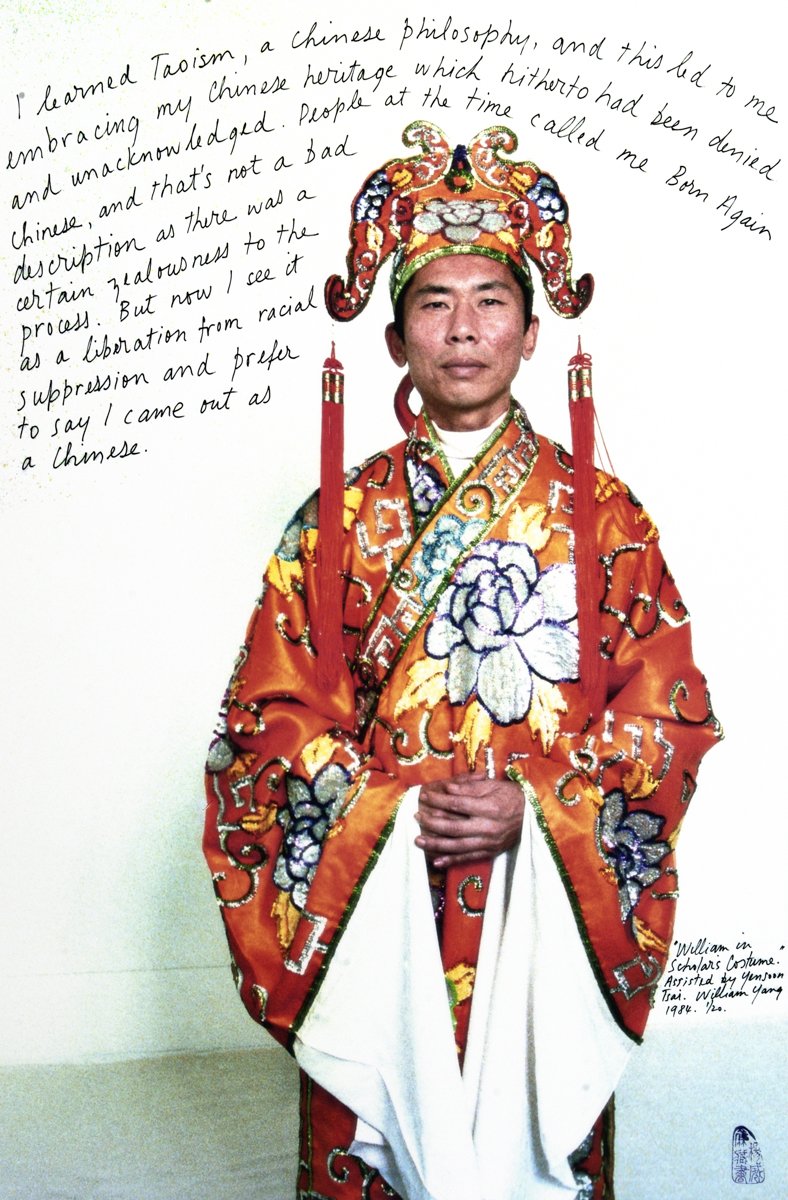 I learned Taoism, a Chinese philosophy, and this led to me
embracing my Chinese heritage which hitherto had been denied
and unacknowledged. People at the time called me Born Again
Chinese, and that's not a bad
description as there was a
certain zealousness to the
process. But now I see it
as a liberation from racial
suppression and prefer
to say I came out as
a Chinese.
"William in
Scholar's Costume."
Assisted by Yensoon
Tsai. William Yang
1984. 1/20.